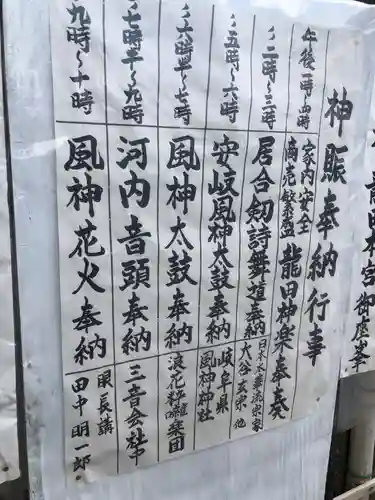 龍田本宮
神賑奉納行事
午後一時～四時
家内安全
商売繁盛
龍田神楽奉奏
二時～三時
居合剣詩舞道奉納
大谷
他
五時～六時
安岐風神太鼓奉納
岐阜県
風神神社
六時半～七時
風神太鼓奉納
浪花
楽団
七時半～九時
河内音頭奉納
三音会社中
九時～十時
風神花火奉納
長講
田中明一郎